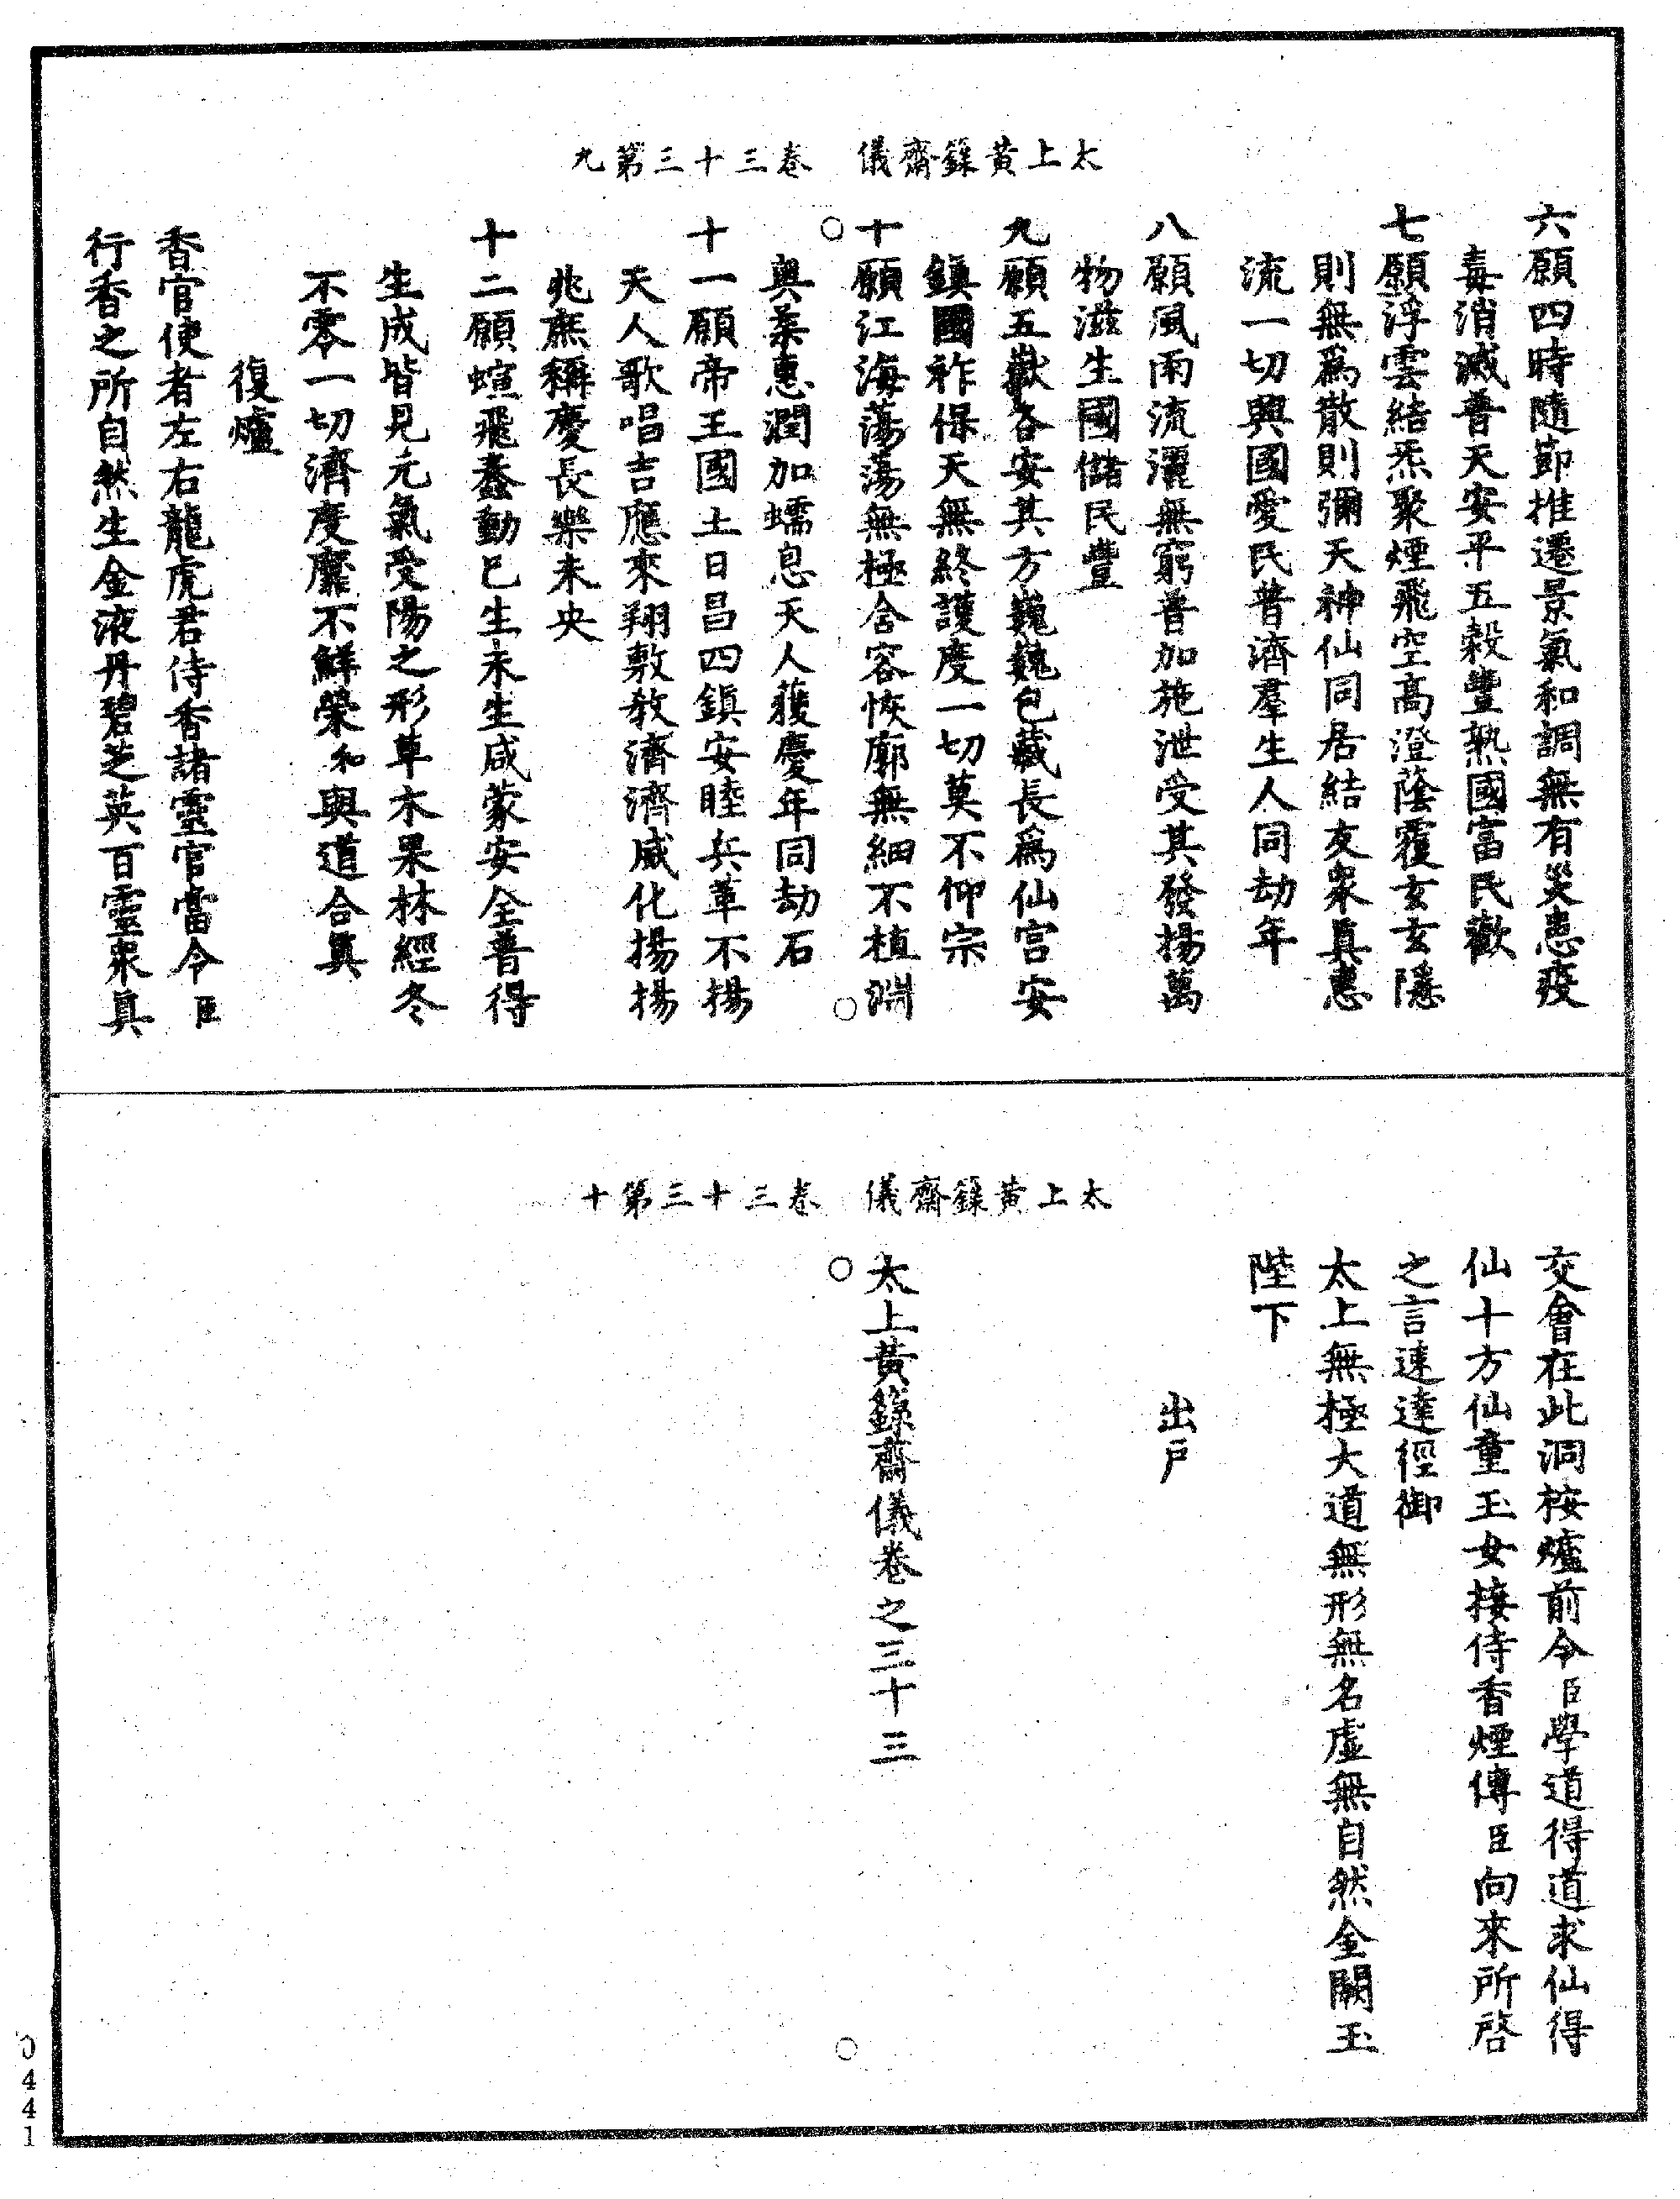 太上黃籙齋儀　卷三十三第九
六願四時隨節推遷景氣和調無有災患疫
毒消滅普天安平五穀豐熟國富民歡
七願浮雲結炁聚煙飛空高澄蔭覆玄玄隱
則無為散則彌天神仙同居結友衆真惠
流一切興國愛民普濟羣生人同劫年
八願風雨流灑無窮普加施泄受其發揚萬
物滋生國儲民豐
九願五嶽各安其方巍巍包藏長為仙宮安
鎮國祚保天無終護度一切莫不仰宗
十願江海蕩蕩無極含容恢廓無細不植淵
奧柔惠潤加蠕息天人獲慶年同劫石
十一願帝王國土日昌四鎮安睦兵革不揚
天人歌唱吉應來翔敷教濟濟威化揚揚
兆庶稱慶長樂未央
十二願蝖飛蠢動已生未生咸蒙安全普得
生成皆見元氣受陽之形草木果林經冬
不零一切濟度靡不鮮榮和與道合真
復爐
香官使者左右龍虎君侍香諸靈官當令臣
行香之所自然生金液丹碧芝英百靈衆真
太上黃籙齋儀　卷三十三第十
交會在此洞桉爐前令臣學道得道求仙得
仙十方仙童玉女接侍香煙傳臣向來所啓
之言速達徑御
太上無極大道無形無名虛無自然金闕玉
陛下
出戶
太上黃籙齋儀卷之三十三
0441